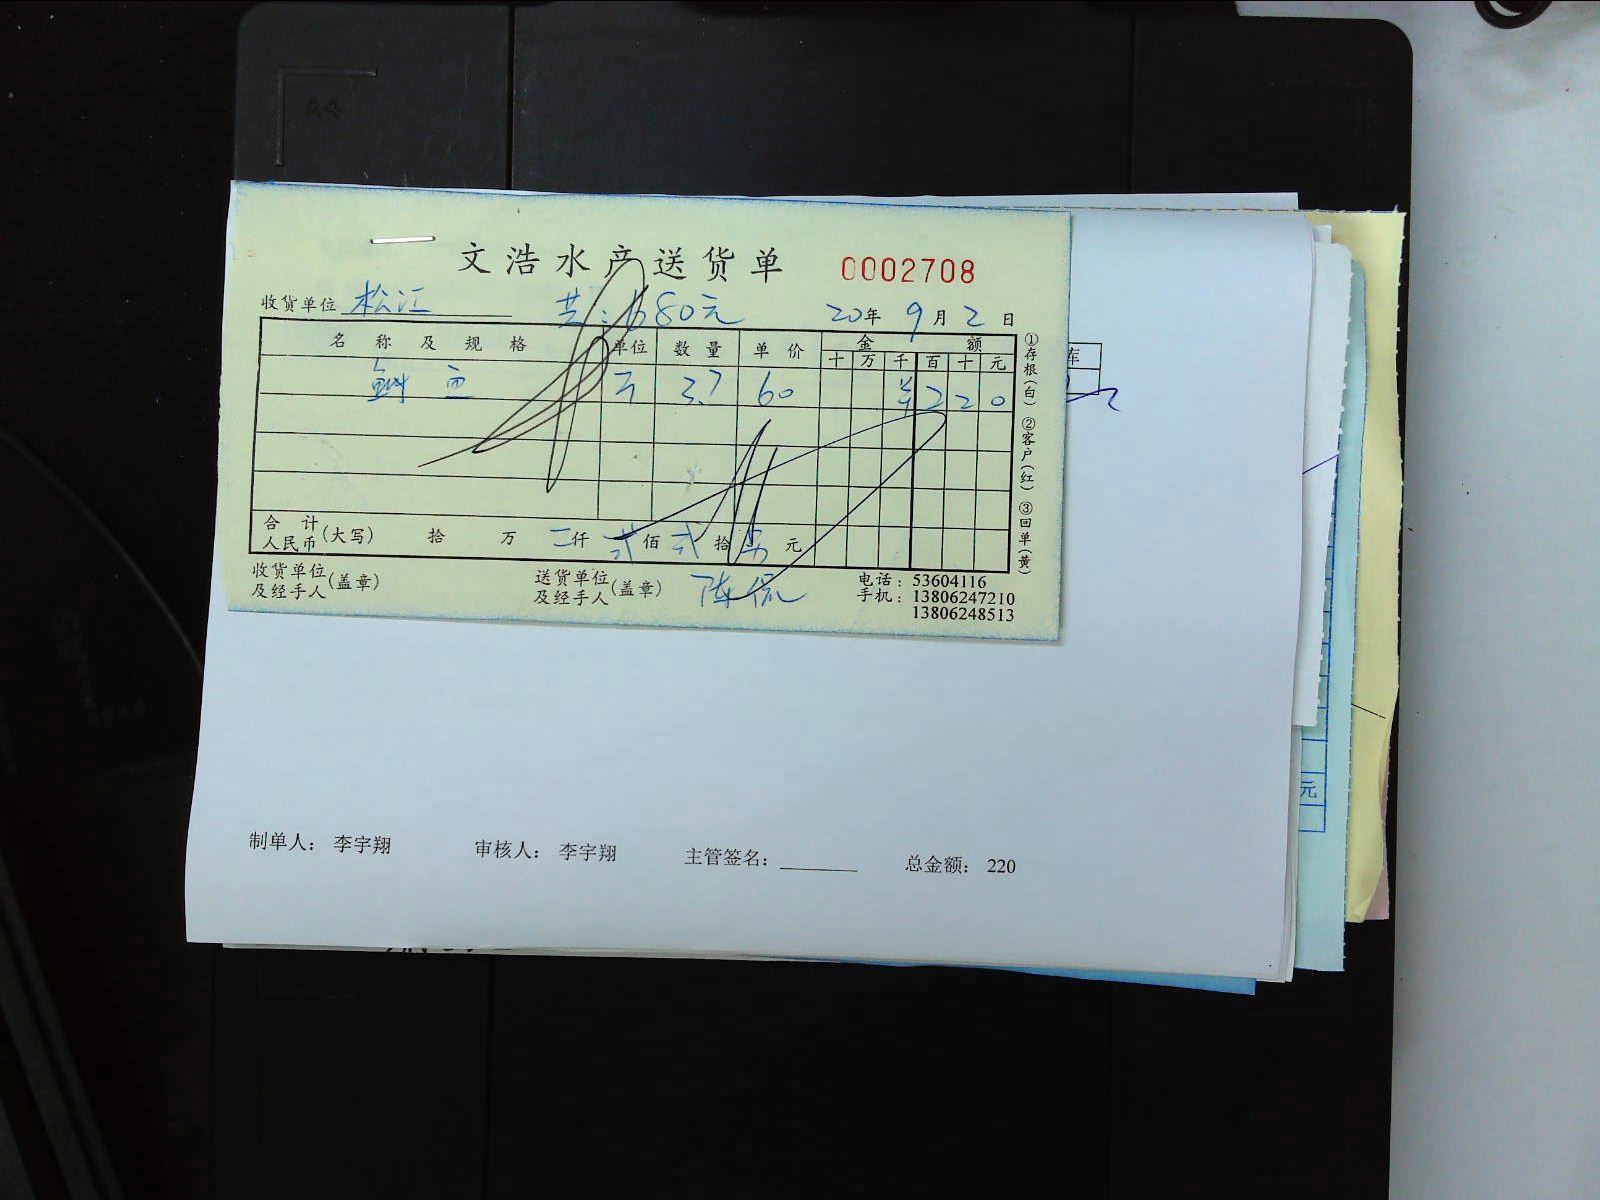 文浩水产送货单 0002708
收货单位 松江 共:680元 20年9月2日
名称及规格 单位 数量 单价 金额
十 万 千 百 十 元
鱼 3.7 60 ¥ 2 2 0
合计人民币(大写) 拾 万 仟 贰佰 贰拾 元
收货单位及经手人(盖章) 送货单位及经手人(盖章) 陈侃
电话:53604116
手机:13806247210
13806248513
①存根(白) ②客户(红) ③回单(黄)
车
元
制单人: 李宇翔 审核人: 李宇翔 主管签名: 总金额: 220